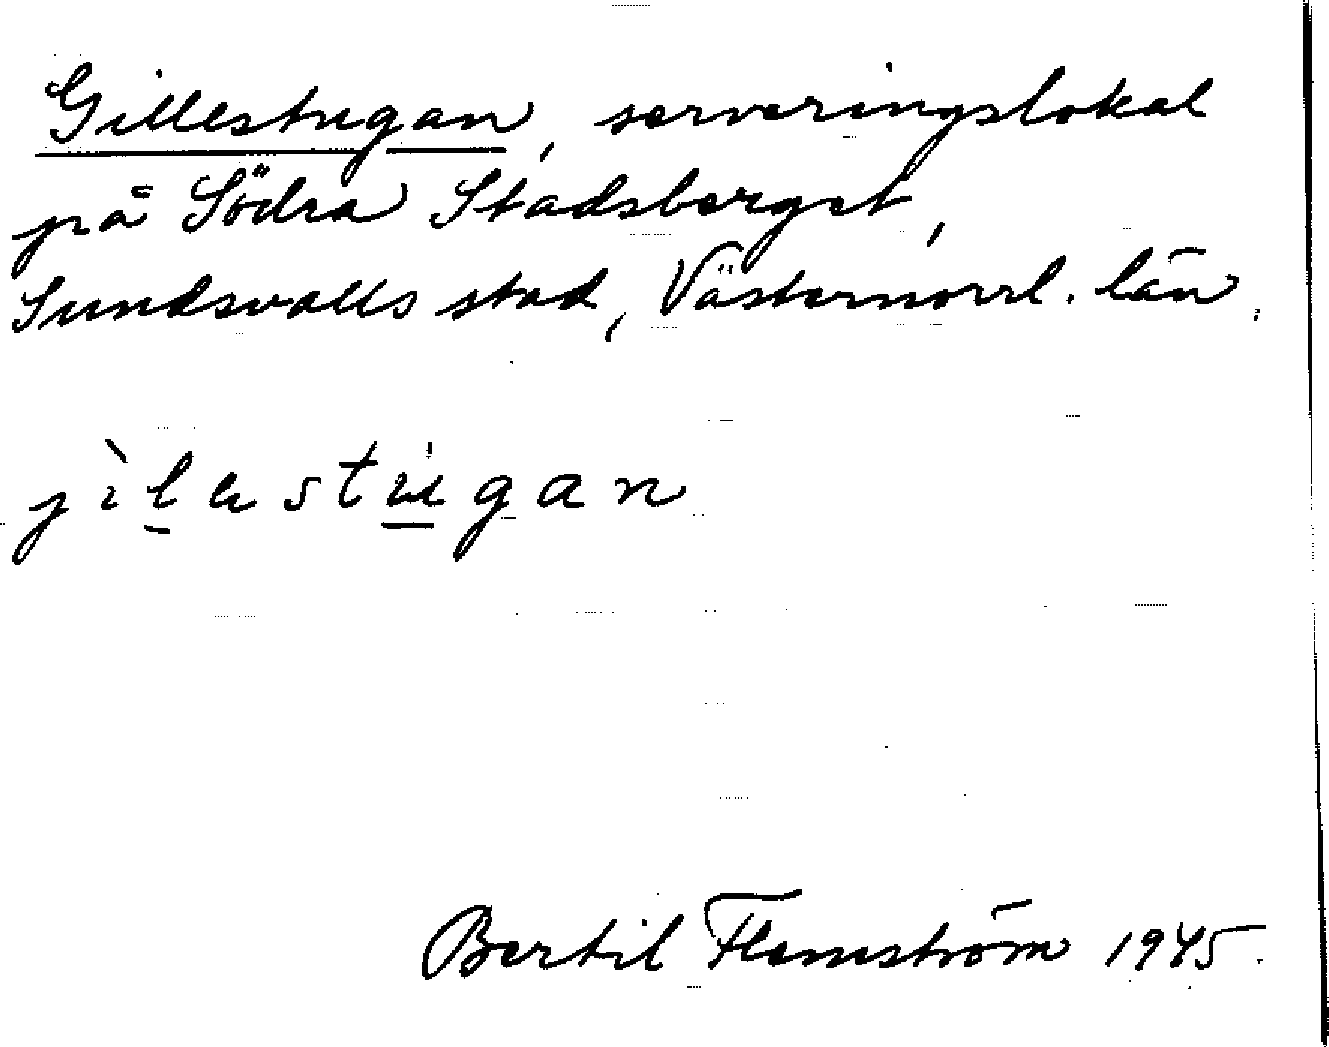 Gillestugan, serveringslokal
på Södra Stadsberget,
Sundsvalls stad, Västernorrl. län.
Bertil Flemström 1945.